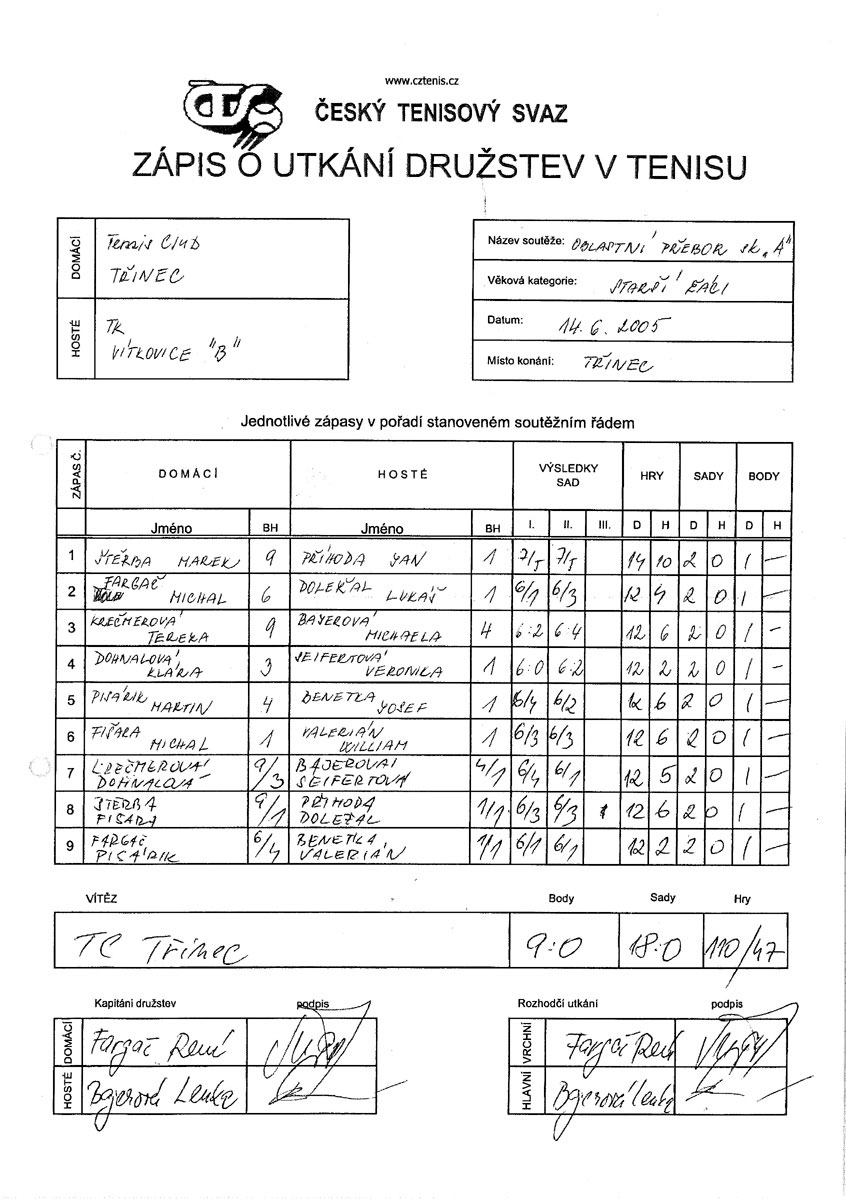 www.cztenis.cz
ČTS ČESKÝ TENISOVÝ SVAZ
ZÁPIS O UTKÁNÍ DRUŽSTEV V TENISU
DOMÁCÍ Tennis Club
TŘINEC
HOSTÉ TK
VÍTKOVICE "B"
Název soutěže: OBLASTNÍ PŘEBOR sk. „A"
Věková kategorie: STARŠÍ ŽÁCI
Datum: 14. 6. 2005
Místo konání: TŘINEC
Jednotlivé zápasy v pořadí stanoveném soutěžním řádem
ZÁPAS Č. DOMÁCÍ HOSTÉ VÝSLEDKY SAD HRY SADY BODY
Jméno BH Jméno BH I. II. III. D H D H D H
1 ŠTĚRBA MAREK 9 PŘÍHODA JAN 1 7/5 7/5 14 10 2 0 1 —
2 FARGAČ MICHAL 6 DOLEŽAL LUKÁŠ 1 6/1 6/3 12 4 2 0 1 —
3 KREČMEROVÁ TEREZA 9 BAJEROVÁ MICHAELA 4 6:2 6:4 12 6 2 0 1 -
4 DOHNALOVÁ KLÁRA 3 SEIFERTOVÁ VERONIKA 1 6:0 6:2 12 2 2 0 1 —
5 PISÁRIK MARTIN 4 BENETKA JOSEF 1 6/4 6/2 12 6 2 0 1 —
6 FIŠARA MICHAL 1 VALERIÁN WILLIAM 1 6/3 6/3 12 6 2 0 1 —
7 KREČMEROVÁ DOHNALOVÁ 9/3 BAJEROVÁ SEIFERTOVÁ 4/1 6/4 6/1 12 5 2 0 1 —
8 ŠTERBA FISARA 9/1 PŘÍHODA DOLEŽAL 1/1 6/3 6/3 12 6 2 0 1 —
9 FARGAČ PISÁRIK 6/4 BENETKA VALERIÁN 1/1 6/1 6/1 12 2 2 0 1 —
VÍTĚZ Body Sady Hry
TC Třinec 9:0 18:0 110/47
Kapitáni družstev podpis
DOMÁCÍ Fargač René
HOSTÉ Bajerová Lenka
Rozhodčí utkání podpis
VRCHNÍ Fargač René
HLAVNÍ Bajerová Lenka